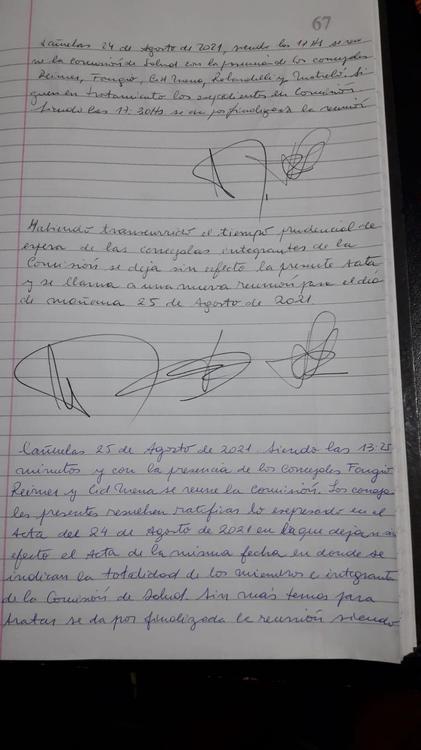 67
Cañuelas 24 de Agosto de 2021, siendo las 17HS se reu
ne la comisión de Salud con la presencia de los concejales
Reimer, Fangio, Cid Mena, Rolandelli y Mutrelo. Si
guen en tratamiento los expedientes en Comisión
Siendo las 17:30Hs se da por finalizada la reunión
Habiendo transcurrido el tiempo prudencial de
espera de las concejalas integrantes de la
Comisión se deja sin efecto la presente Acta
y se llama a una nueva reunión para el día
de mañana 25 de Agosto de 2021
Cañuelas 25 de Agosto de 2021. Siendo las 13:25
minutos y con la presencia de los Concejales Fangio
Reimer y Cid Mena se reune la comisión. Los conceja
les presentes resuelven ratificar lo expresado en el
Acta del 24 de Agosto de 2021 en la que dejan sin
efecto el Acta de la misma fecha en donde se
indican la totalidad de los miembros e integrante
de la Comisión de Salud. Sin más temas para
tratar se da por finalizada la reunión siendo